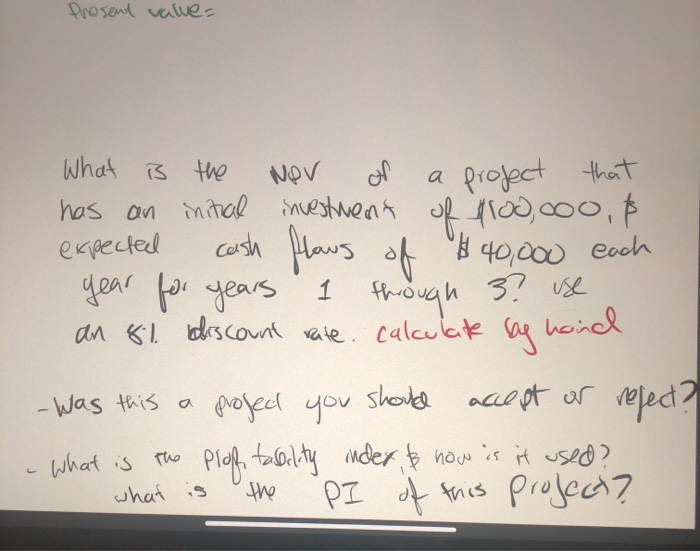 Present value=
What is the NPV of a project that
has an initial investment of $100,000, &
expected cash flows of $40,000 each
year for years 1 through 3? use
an 8% discount rate. calculate by hand
- Was this a project you should accept or reject?
- What is the Profitability index, & how is it used?
what is the PI of this project?